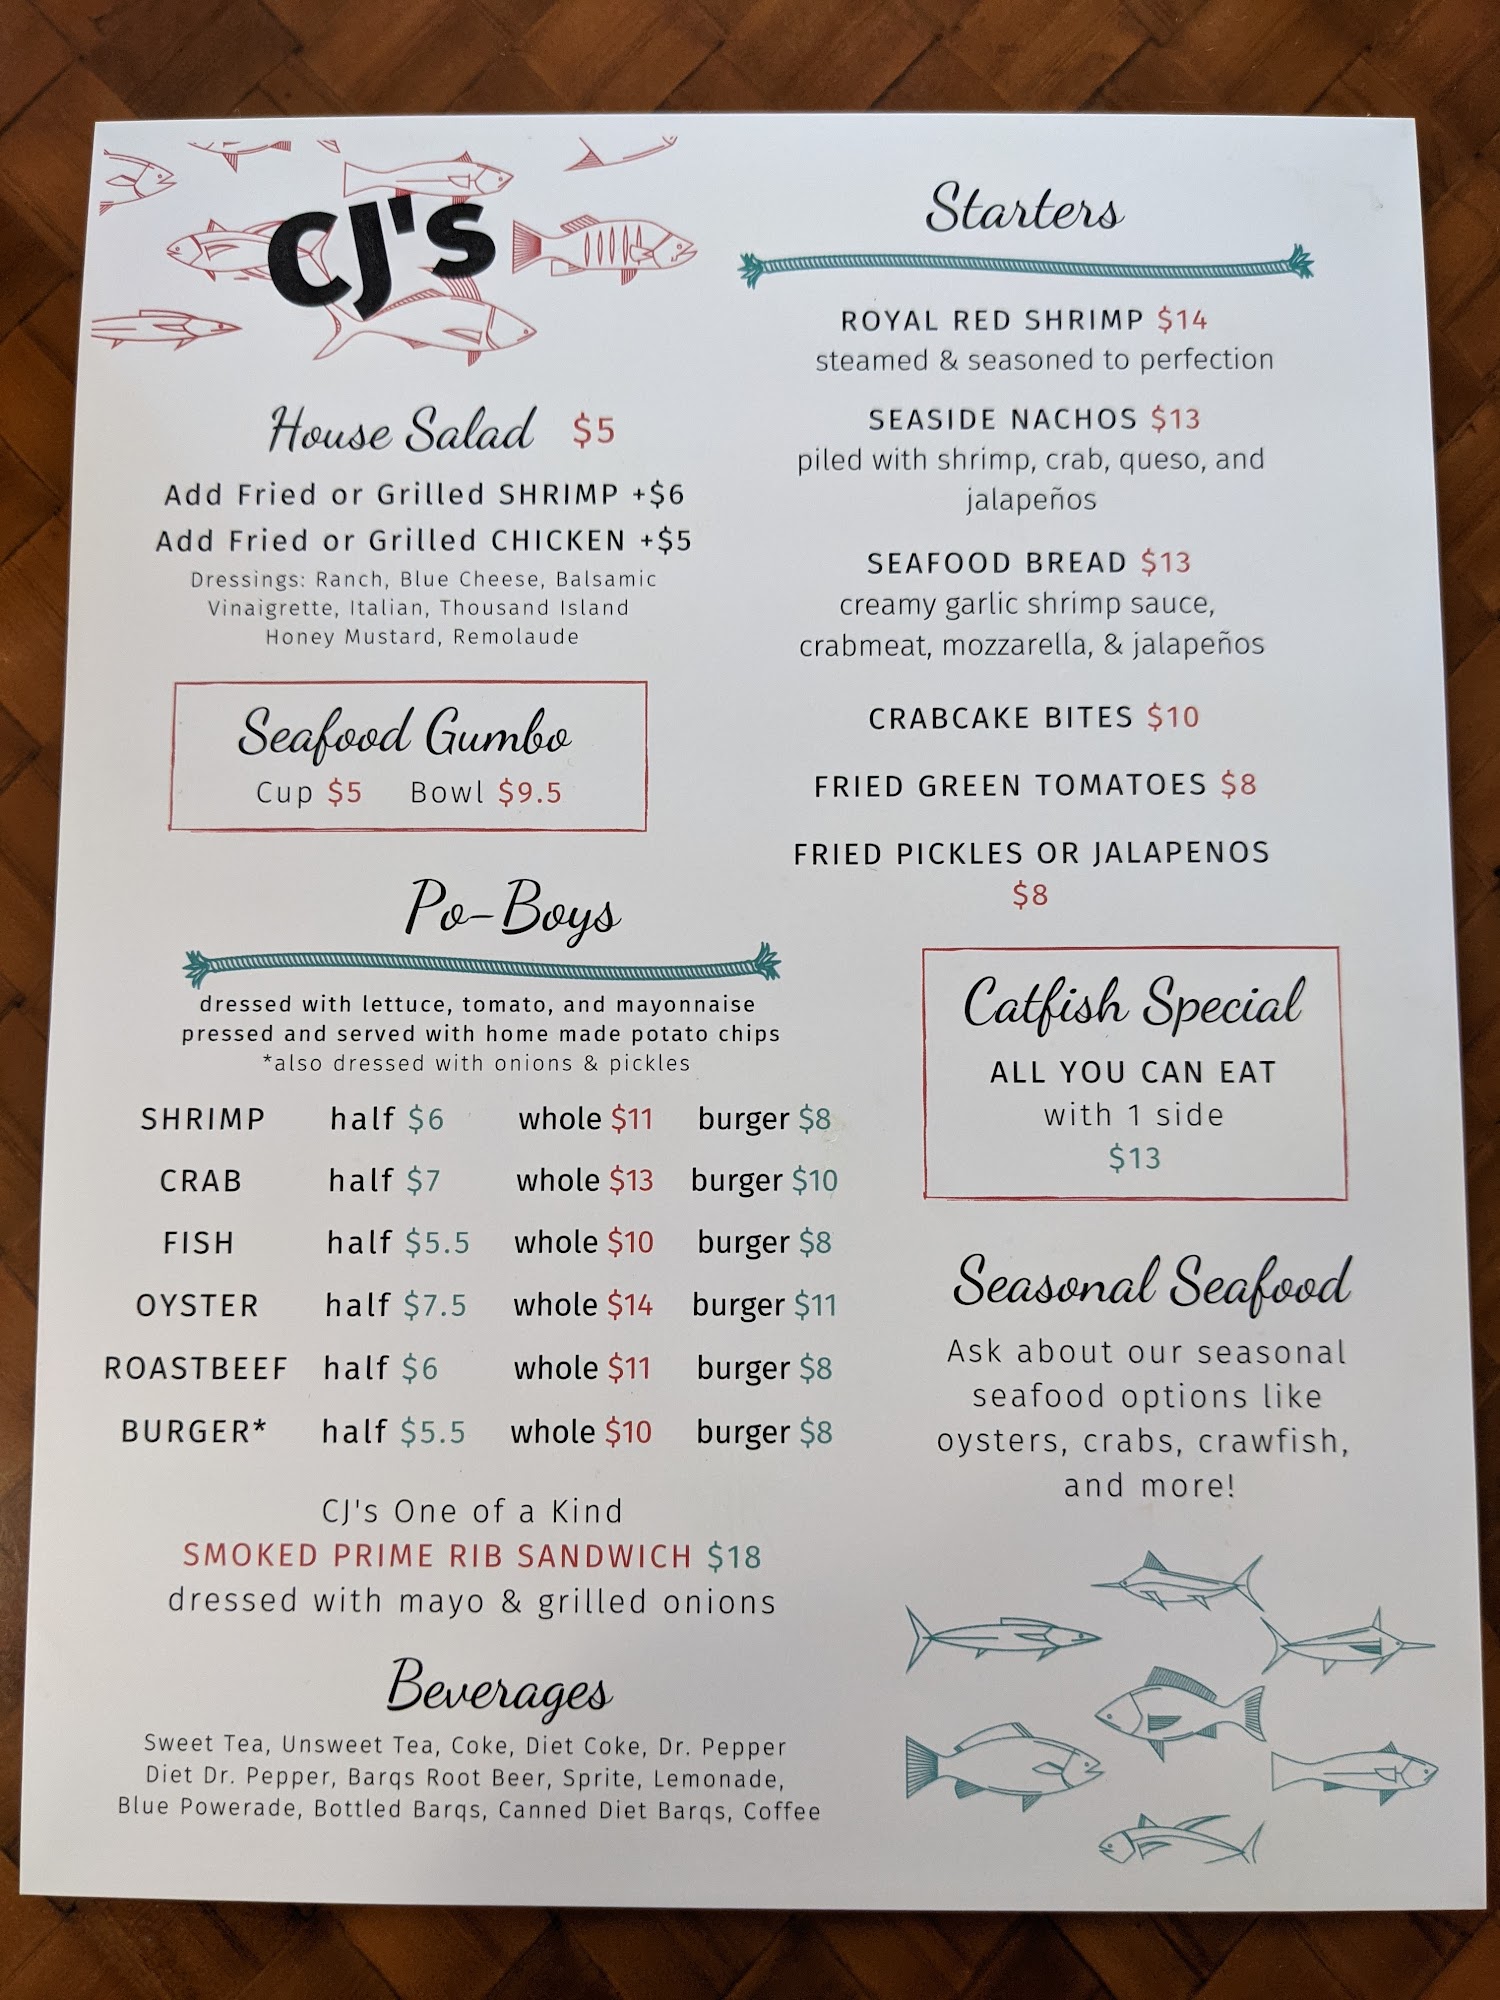 CJ's
House Salad $5
Add Fried or Grilled SHRIMP +$6
Add Fried or Grilled CHICKEN +$5
Dressings: Ranch, Blue Cheese, Balsamic
Vinaigrette, Italian, Thousand Island
Honey Mustard, Remolaude
Seafood Gumbo
Cup $5 Bowl $9.5
Po-Boys
dressed with lettuce, tomato, and mayonnaise
pressed and served with home made potato chips
*also dressed with onions & pickles
SHRIMP half $6 whole $11 burger $8
CRAB half $7 whole $13 burger $10
FISH half $5.5 whole $10 burger $8
OYSTER half $7.5 whole $14 burger $11
ROASTBEEF half $6 whole $11 burger $8
BURGER* half $5.5 whole $10 burger $8
CJ's One of a Kind
SMOKED PRIME RIB SANDWICH $18
dressed with mayo & grilled onions
Beverages
Sweet Tea, Unsweet Tea, Coke, Diet Coke, Dr. Pepper
Diet Dr. Pepper, Barqs Root Beer, Sprite, Lemonade,
Blue Powerade, Bottled Barqs, Canned Diet Barqs, Coffee
Starters
ROYAL RED SHRIMP $14
steamed & seasoned to perfection
SEASIDE NACHOS $13
piled with shrimp, crab, queso, and
jalapeños
SEAFOOD BREAD $13
creamy garlic shrimp sauce,
crabmeat, mozzarella, & jalapeños
CRABCAKE BITES $10
FRIED GREEN TOMATOES $8
FRIED PICKLES OR JALAPENOS
$8
Catfish Special
ALL YOU CAN EAT
with 1 side
$13
Seasonal Seafood
Ask about our seasonal
seafood options like
oysters, crabs, crawfish,
and more!